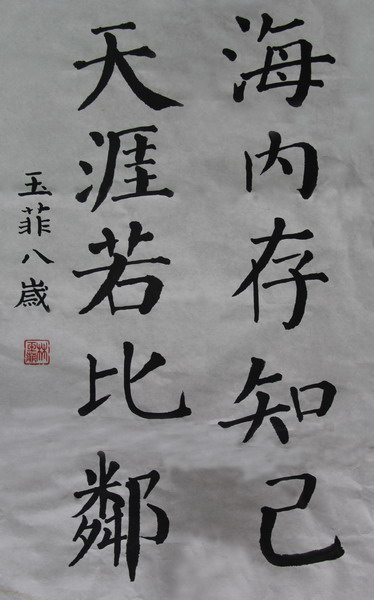 海内存知己
天涯若比鄰
玉菲八歲